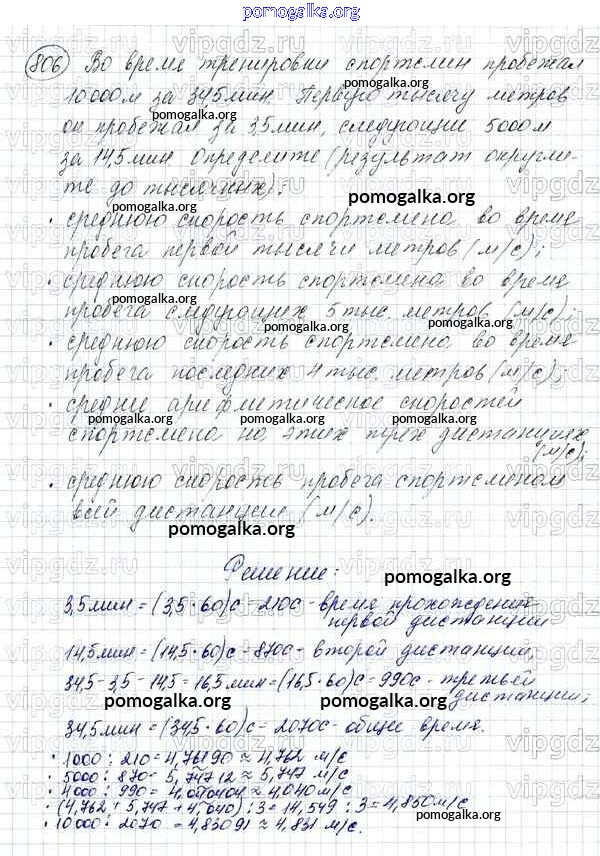 pomogalka.org
806 Во время тренировки спортсмен пробежал
10 000 м за 34,5 мин. Первую тысячу метров
он пробежал за 3,5 мин, следующие 5000 м
за 14,5 мин. Определите (результат округли-
те до тысячных):
pomogalka.org
· среднюю скорость спортсмена во время
пробега первой тысячи метров (м/с);
· среднюю скорость спортсмена во время
пробега следующих 5 тыс. метров (м/с);
· среднюю скорость спортсмена во время
пробега последних 4 тыс. метров (м/с);
· среднее арифметическое скоростей
спортсмена на этих трех дистанциях
(м/с);
· среднюю скорость пробега спортсменом
всей дистанции (м/с).
pomogalka.org
Решение:
pomogalka.org
3,5 мин = (3,5 · 60) с = 210 с - время прохождения
первой дистанции
14,5 мин = (14,5 · 60) с = 870 с - второй дистанции;
34,5 - 3,5 - 14,5 = 16,5 мин = (16,5 · 60) с = 990 с - третьей
дистанции;
34,5 мин = (34,5 · 60) с = 2070 с - общее время.
· 1000 : 210 = 4,76190 ≈ 4,762 м/с
· 5000 : 870 = 5,74712 ≈ 5,747 м/с
· 4000 : 990 = 4,040404 ≈ 4,040 м/с
· (4,762 + 5,747 + 4,040) : 3 = 14,549 : 3 = 4,850 м/с
· 10 000 : 2070 = 4,83091 ≈ 4,831 м/с.